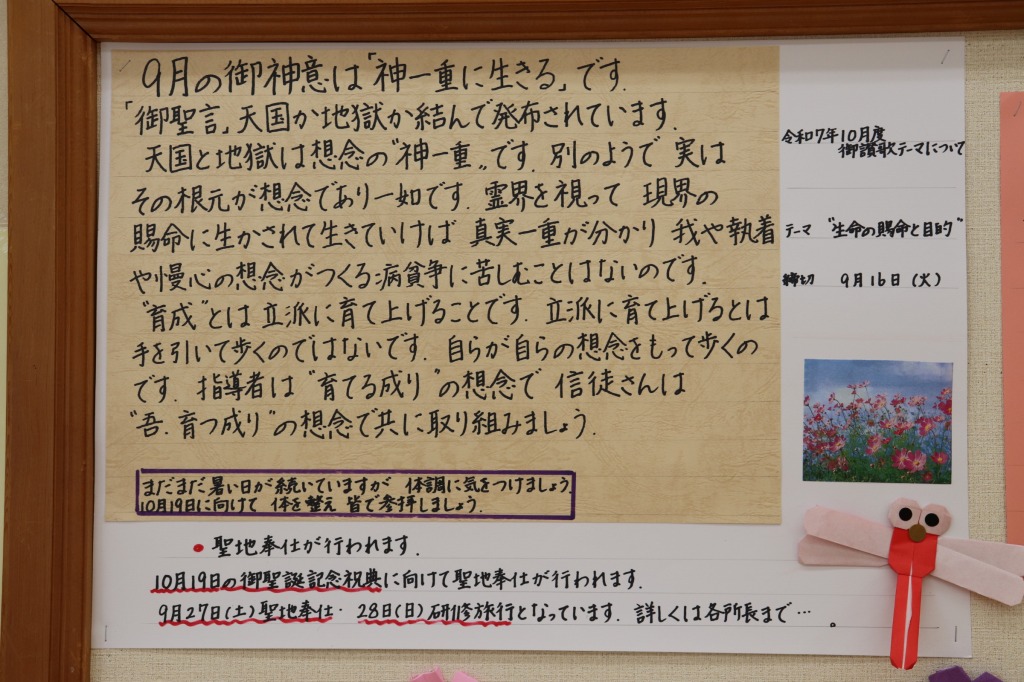 9月の御神意は「神一重に生きる」です.
「御聖言」天国か地獄か結んで発布されています.
天国と地獄は想念の"神一重"です. 別のようで 実は
その根元が想念であり一如です. 霊界を視って 現界の
賜命に生かされて生きていけば 真実一重が分かり 我や執着
や慢心の想念がつくる病貧争に苦しむことはないのです.
"育成"とは 立派に育て上げることです. 立派に育て上げるとは
手を引いて歩くのではないです. 自らが自らの想念をもって歩くの
です. 指導者は "育てる成り"の想念で 信徒さんは
"吾.育つ成り"の想念で共に取り組みましょう.
まだまだ暑い日が続いていますが 体調に気をつけましょう.
10月19日に向けて 体を整え 皆で参拝しましょう.
• 聖地奉仕が行われます.
10月19日の御聖誕記念祝典に向けて聖地奉仕が行われます.
9月27日(土)聖地奉仕・28日(日)研修旅行となっています. 詳しくは各所長まで…。
令和7年10月度
御讃歌テーマについて
テーマ "生命の賜命と目的"
締切 9月16日(火)